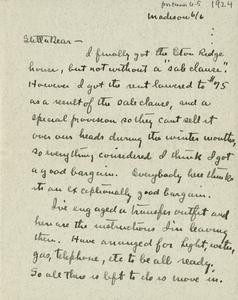 1924
Madison 6/6
Stella Dear —
I finally got the Eton Ridge
house, but not without a "sale clause".
However I got the rent lowered to $75
as a result of the sale clause, and a
special provision so they can't sell it
over our heads during the winter months,
so everything considered I think I got
a good bargain. Everybody here thinks
its an exceptionally good bargain.
I've engaged a transfer outfit and
here are the instructions I'm leaving
them. Have arranged for light, water,
gas, telephone, etc to be all ready.
So all there is left to do is move in.